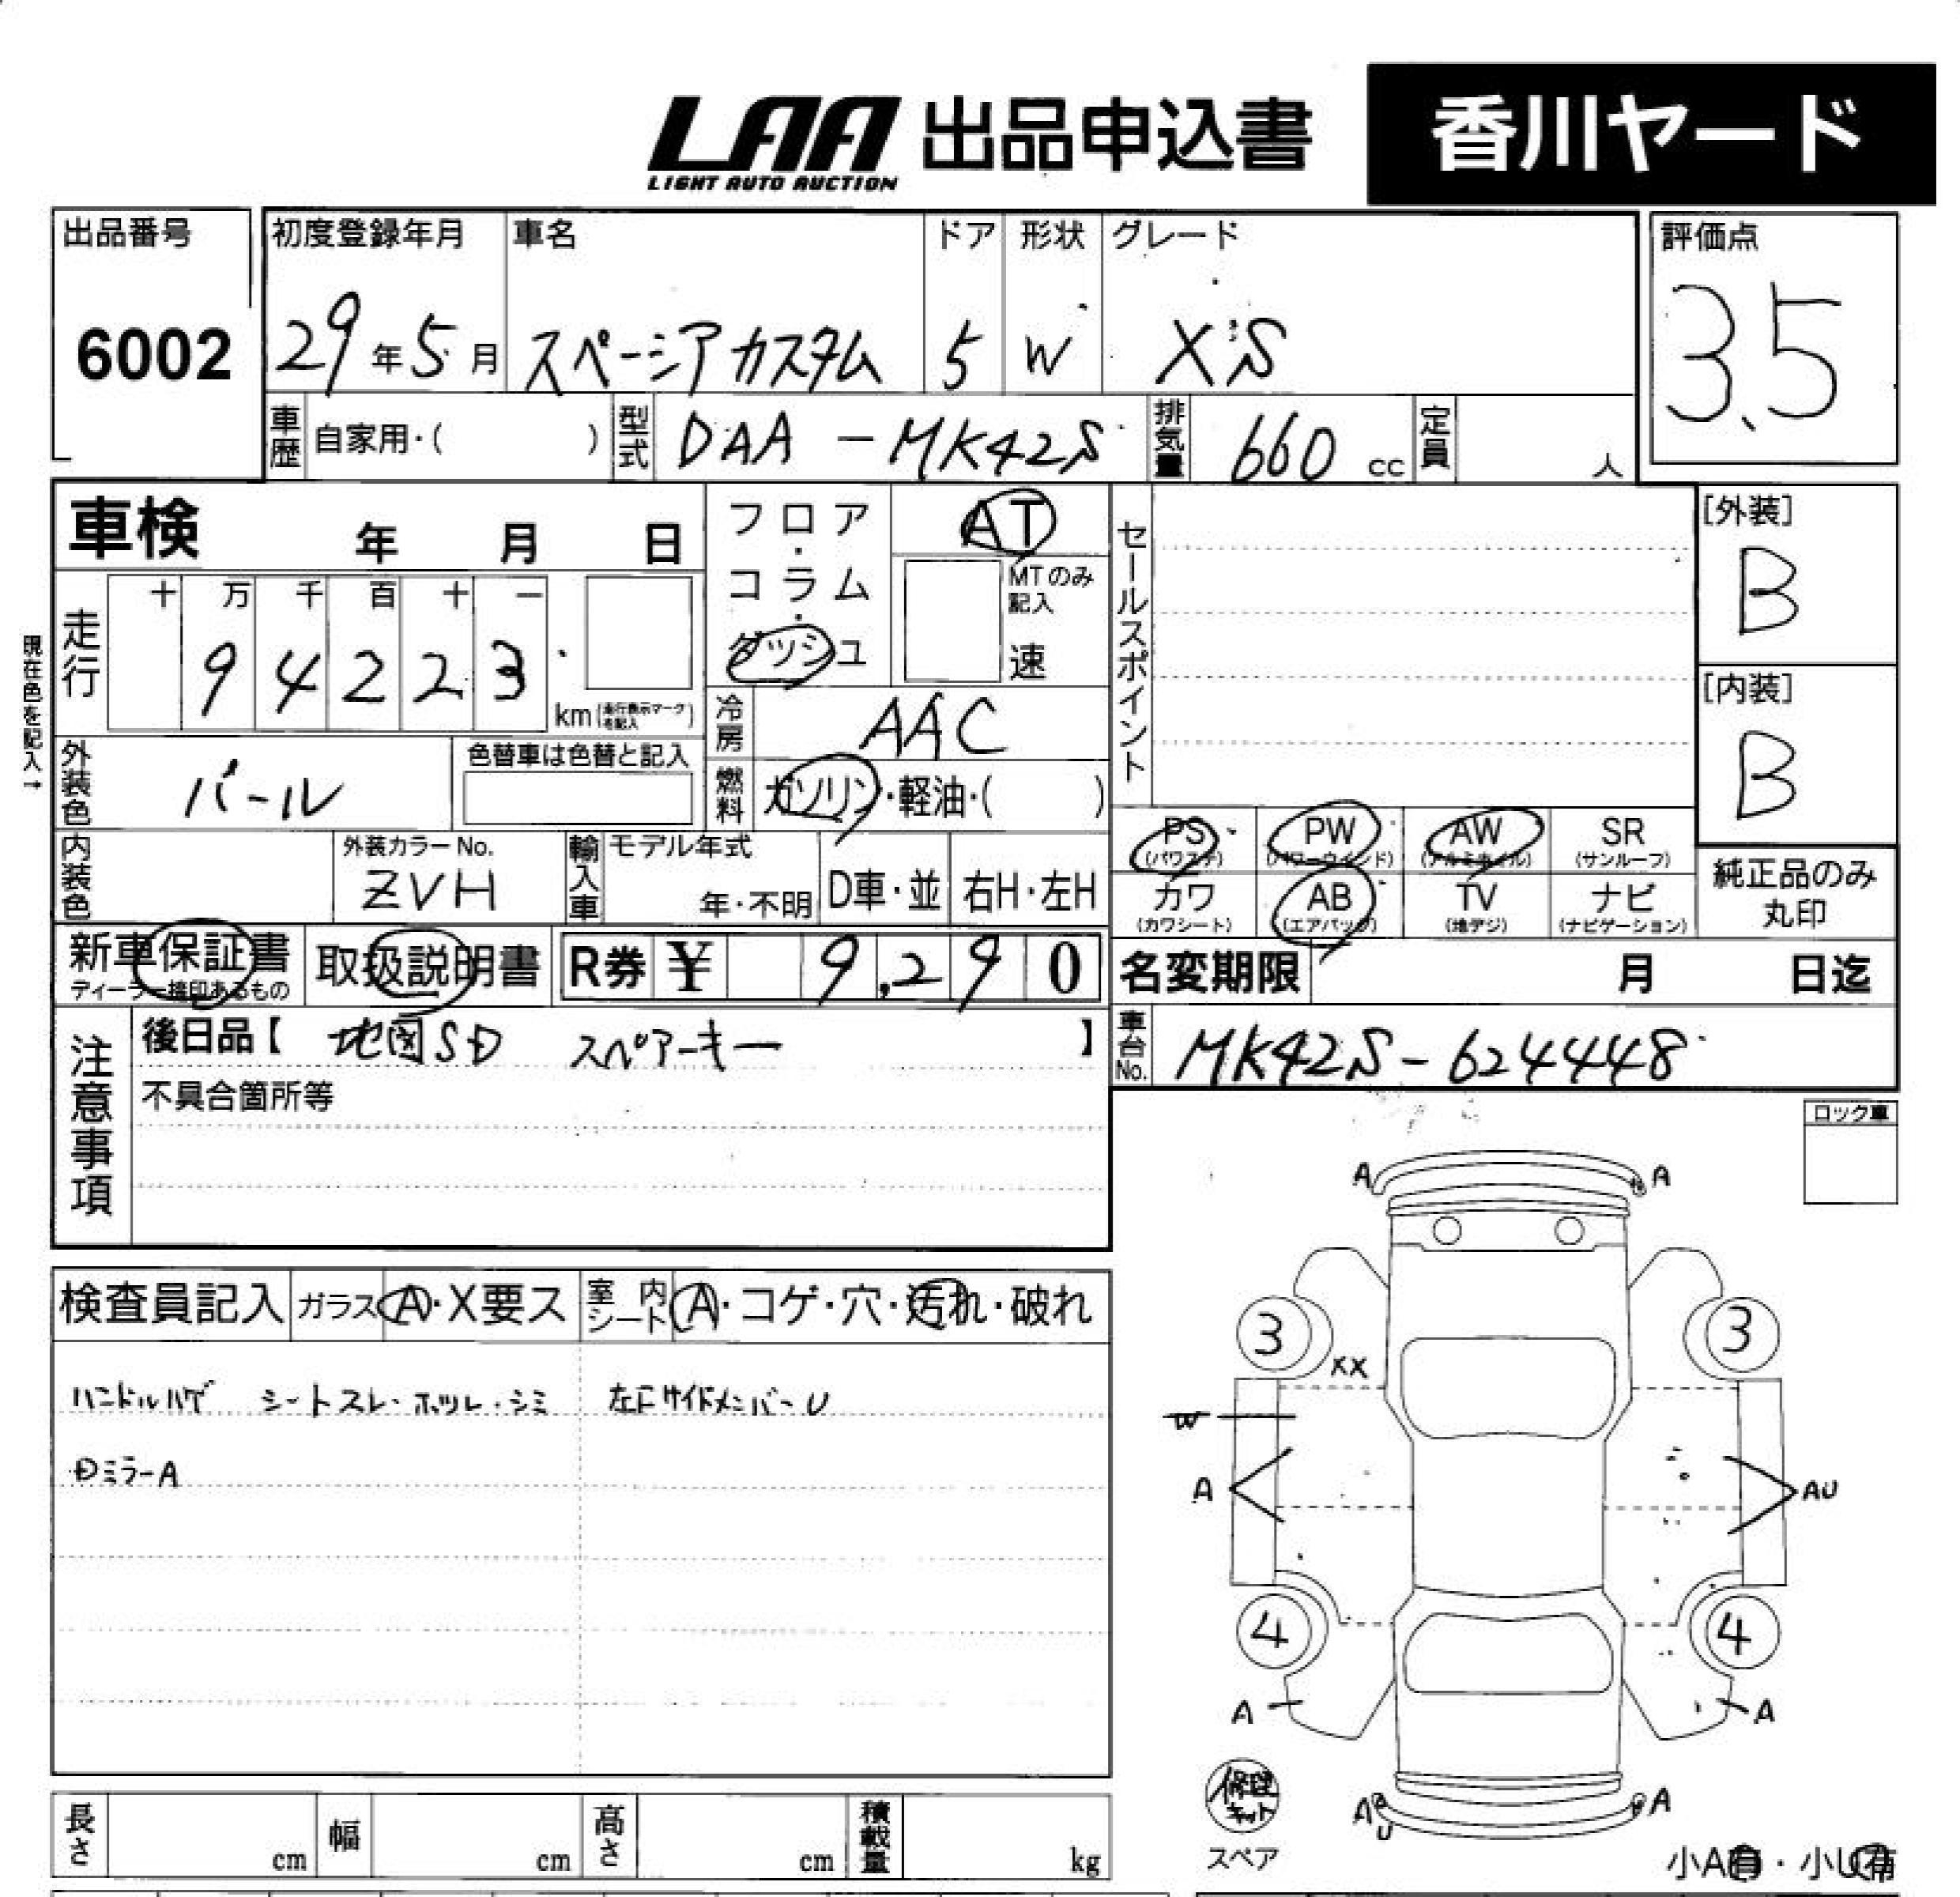 LAA 出品申込書 香川ヤード
LIGHT AUTO AUCTION
出品番号 初度登録年月 車名 ドア 形状 グレード 評価点
6002 29年5月 スペーシアカスタム 5 W XS 3.5
車歴 自家用・( ) 型式 DAA-MK42S 排気量 660 cc 定員 人
車検 年 月 日 フロア・コラム・ダッシュ AT セールスポイント [外装]
MTのみ記入 速 B
走行 十 万 千 百 十 一
9 4 2 2 3 km(走行表示マークを記入)
現在色を記入→
冷房 AAC [内装]
外装色 パール 色替車は色替と記入 B
燃料 ガソリン・軽油・( )
PS PW AW SR
(パワステ) (パワーウインド) (アルミホイル) (サンルーフ)
内装色 外装カラーNo. 輸入車 モデル年式
ZVH 年・不明 D車・並 右H・左H
カワ AB TV ナビ 純正品のみ
(カワシート) (エアバッグ) (地デジ) (ナビゲーション) 丸印
新車保証書 取扱説明書 R券 ¥ 9,290 名変期限 月 日迄
ディーラー捺印あるもの
注意事項 後日品【 地図SD スペアーキー 】 車台No. MK42S-624448
不具合箇所等
ロック車
A A
検査員記入 ガラス A・X要ス 室内シート A・コゲ・穴・汚れ・破れ
3 3
XX
ハンドルハゲ シートスレ・ホツレ・シミ 左FサイドメンバーU
W
Dミラー A
A AU
4 4
A A
修理キット
スペア
A U A
長さ cm 幅 cm 高さ cm 積載量 kg
小A有・小U有